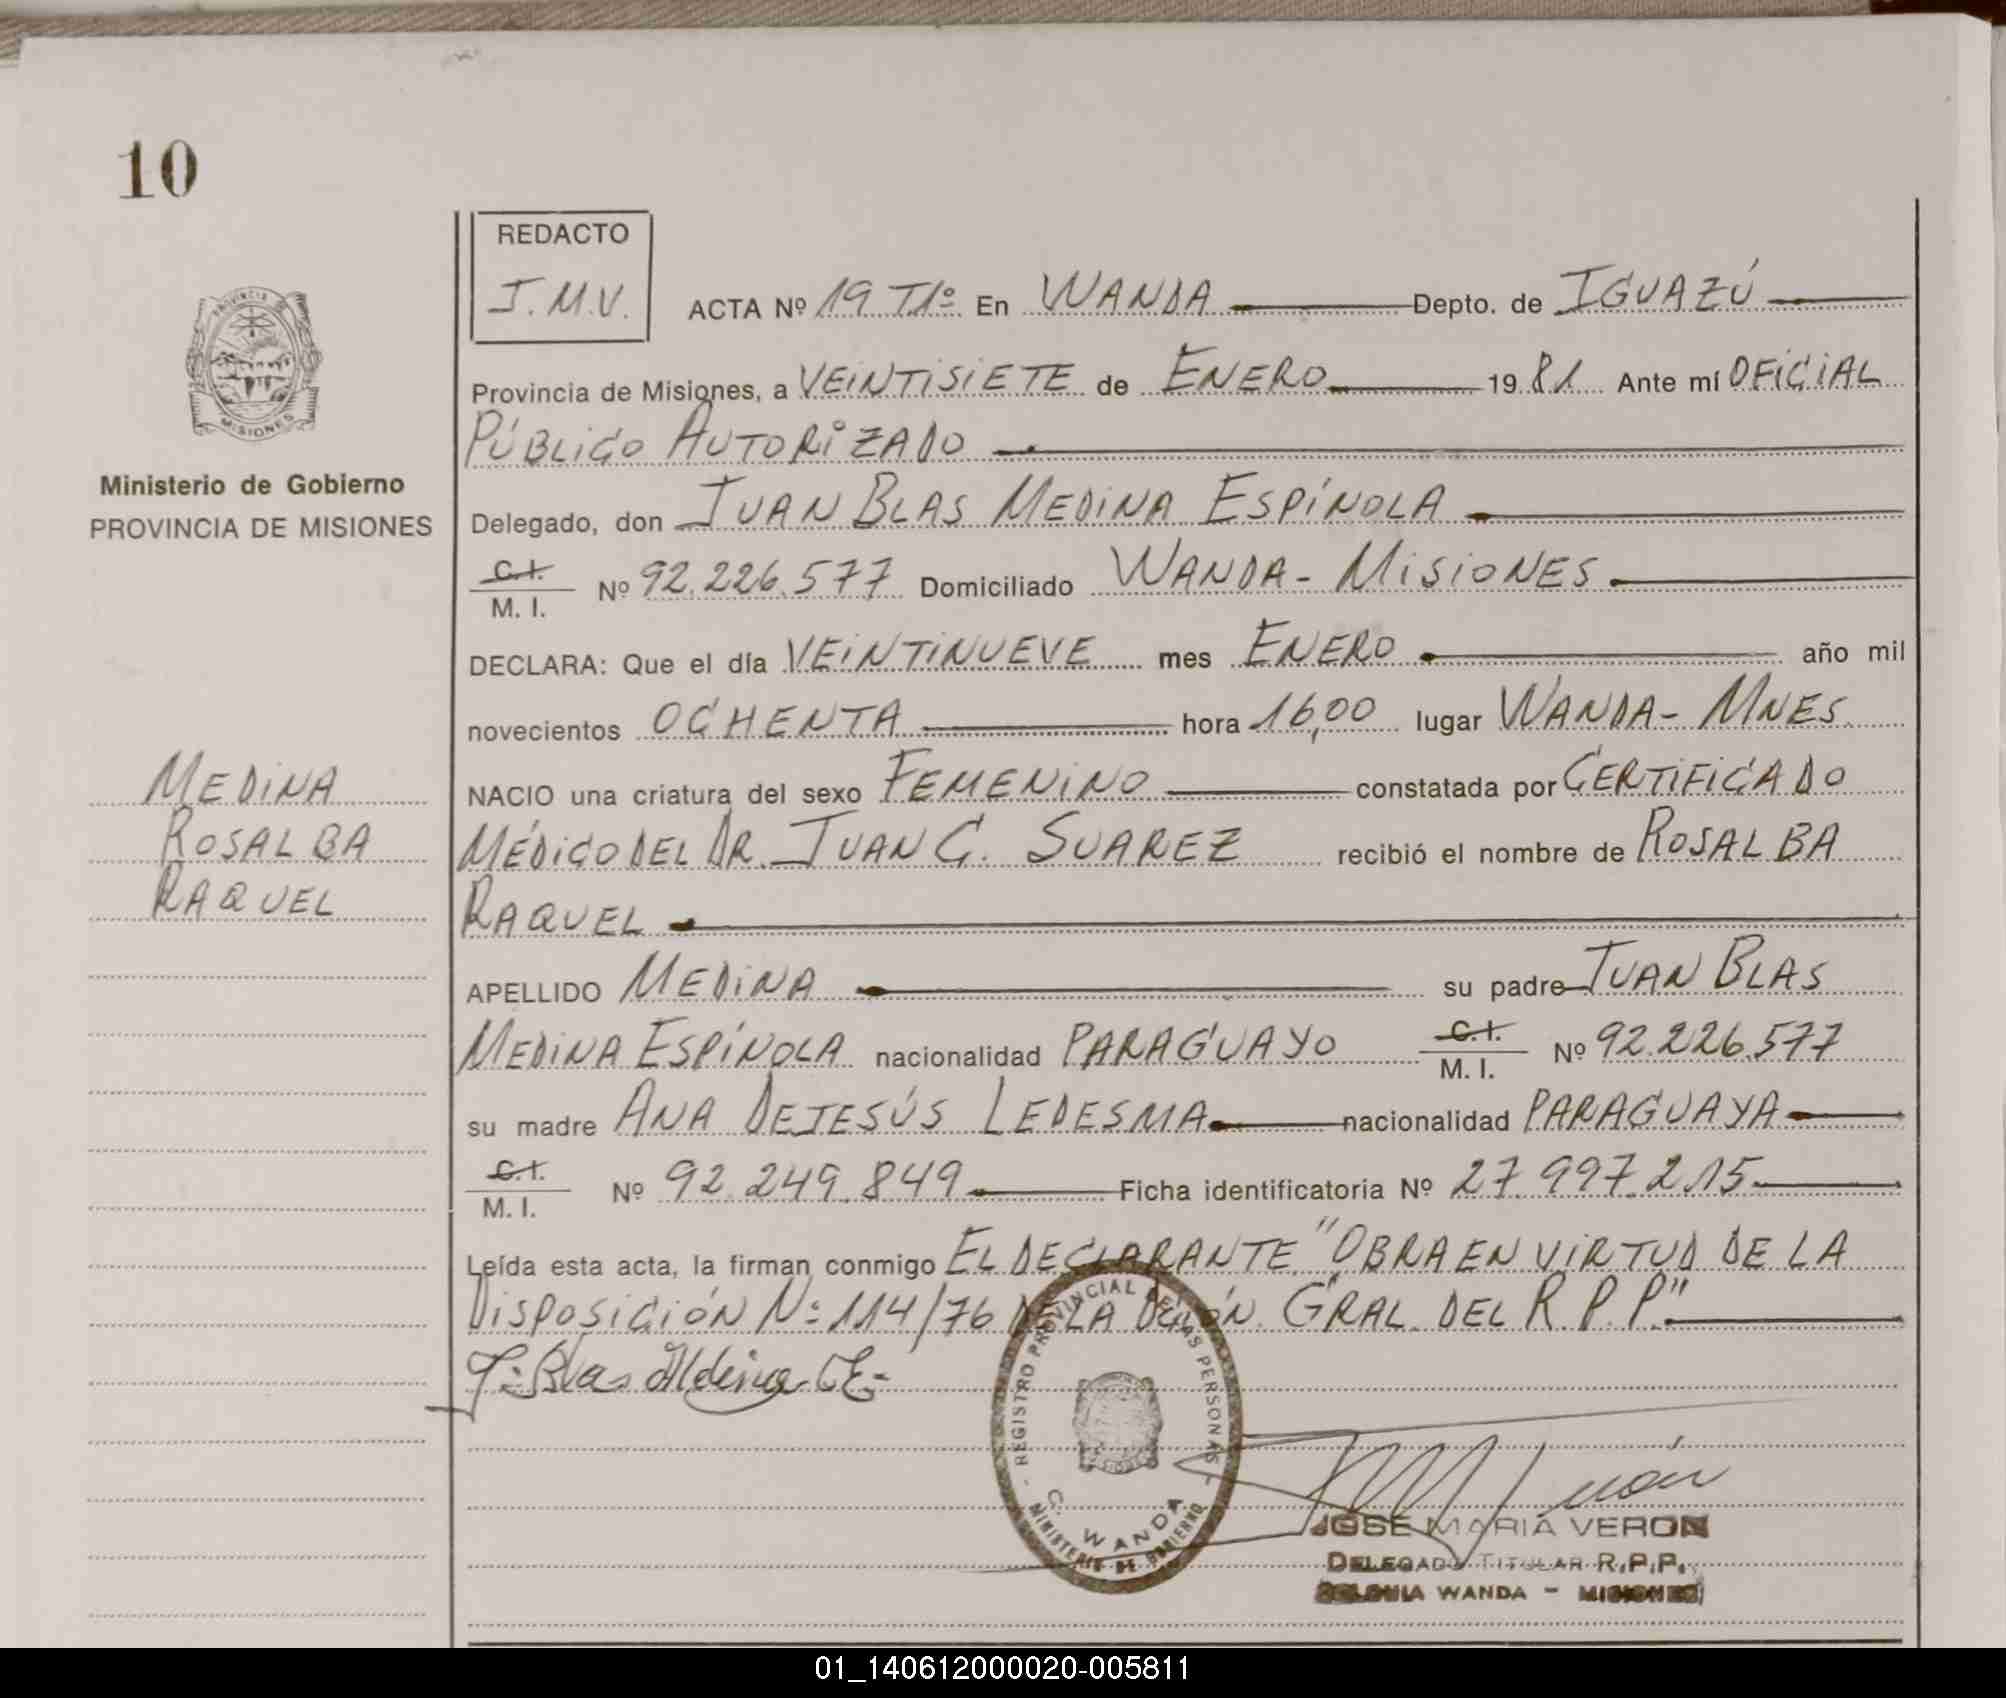 10
REDACTO
J.M.V.
ACTA Nº 19 T1º En WANDA Depto. de IGUAZÚ
PROVINCIA DE
MISIONES
Provincia de Misiones, a VEINTISIETE de ENERO 1981 Ante mí OFICIAL
PÚBLICO AUTORIZADO
Ministerio de Gobierno
PROVINCIA DE MISIONES
Delegado, don JUAN BLAS MEDINA ESPÍNOLA
C.I.
M. I. Nº 92.226.577 Domiciliado WANDA - MISIONES
DECLARA: Que el día VEINTINUEVE mes ENERO año mil
novecientos OCHENTA hora 16,00 lugar WANDA - MNES
MEDINA
ROSALBA
RAQUEL
NACIO una criatura del sexo FEMENINO constatada por CERTIFICADO
MÉDICO DEL DR. JUAN C. SUAREZ recibió el nombre de ROSALBA
RAQUEL
APELLIDO MEDINA su padre JUAN BLAS
MEDINA ESPÍNOLA nacionalidad PARAGUAYO C.I.
M. I. Nº 92.226.577
su madre ANA DEJESÚS LEDESMA nacionalidad PARAGUAYA
C.I.
M. I. Nº 92.249.849 Ficha identificatoria Nº 27.997.215
Leída esta acta, la firman conmigo EL DECLARANTE "OBRA EN VIRTUD DE LA
DISPOSICIÓN Nº 114/76 DE LA DCIÓN. GRAL. DEL R.P.P."
J. Blas Medina E.
- REGISTRO PROVINCIAL DE LAS PERSONAS -
MISIONES
C. WANDA
MINISTERIO DE GOBIERNO
JOSE MARIA VERON
DELEGADO TITULAR R.P.P.
COLONIA WANDA - MISIONES
01_140612000020-005811